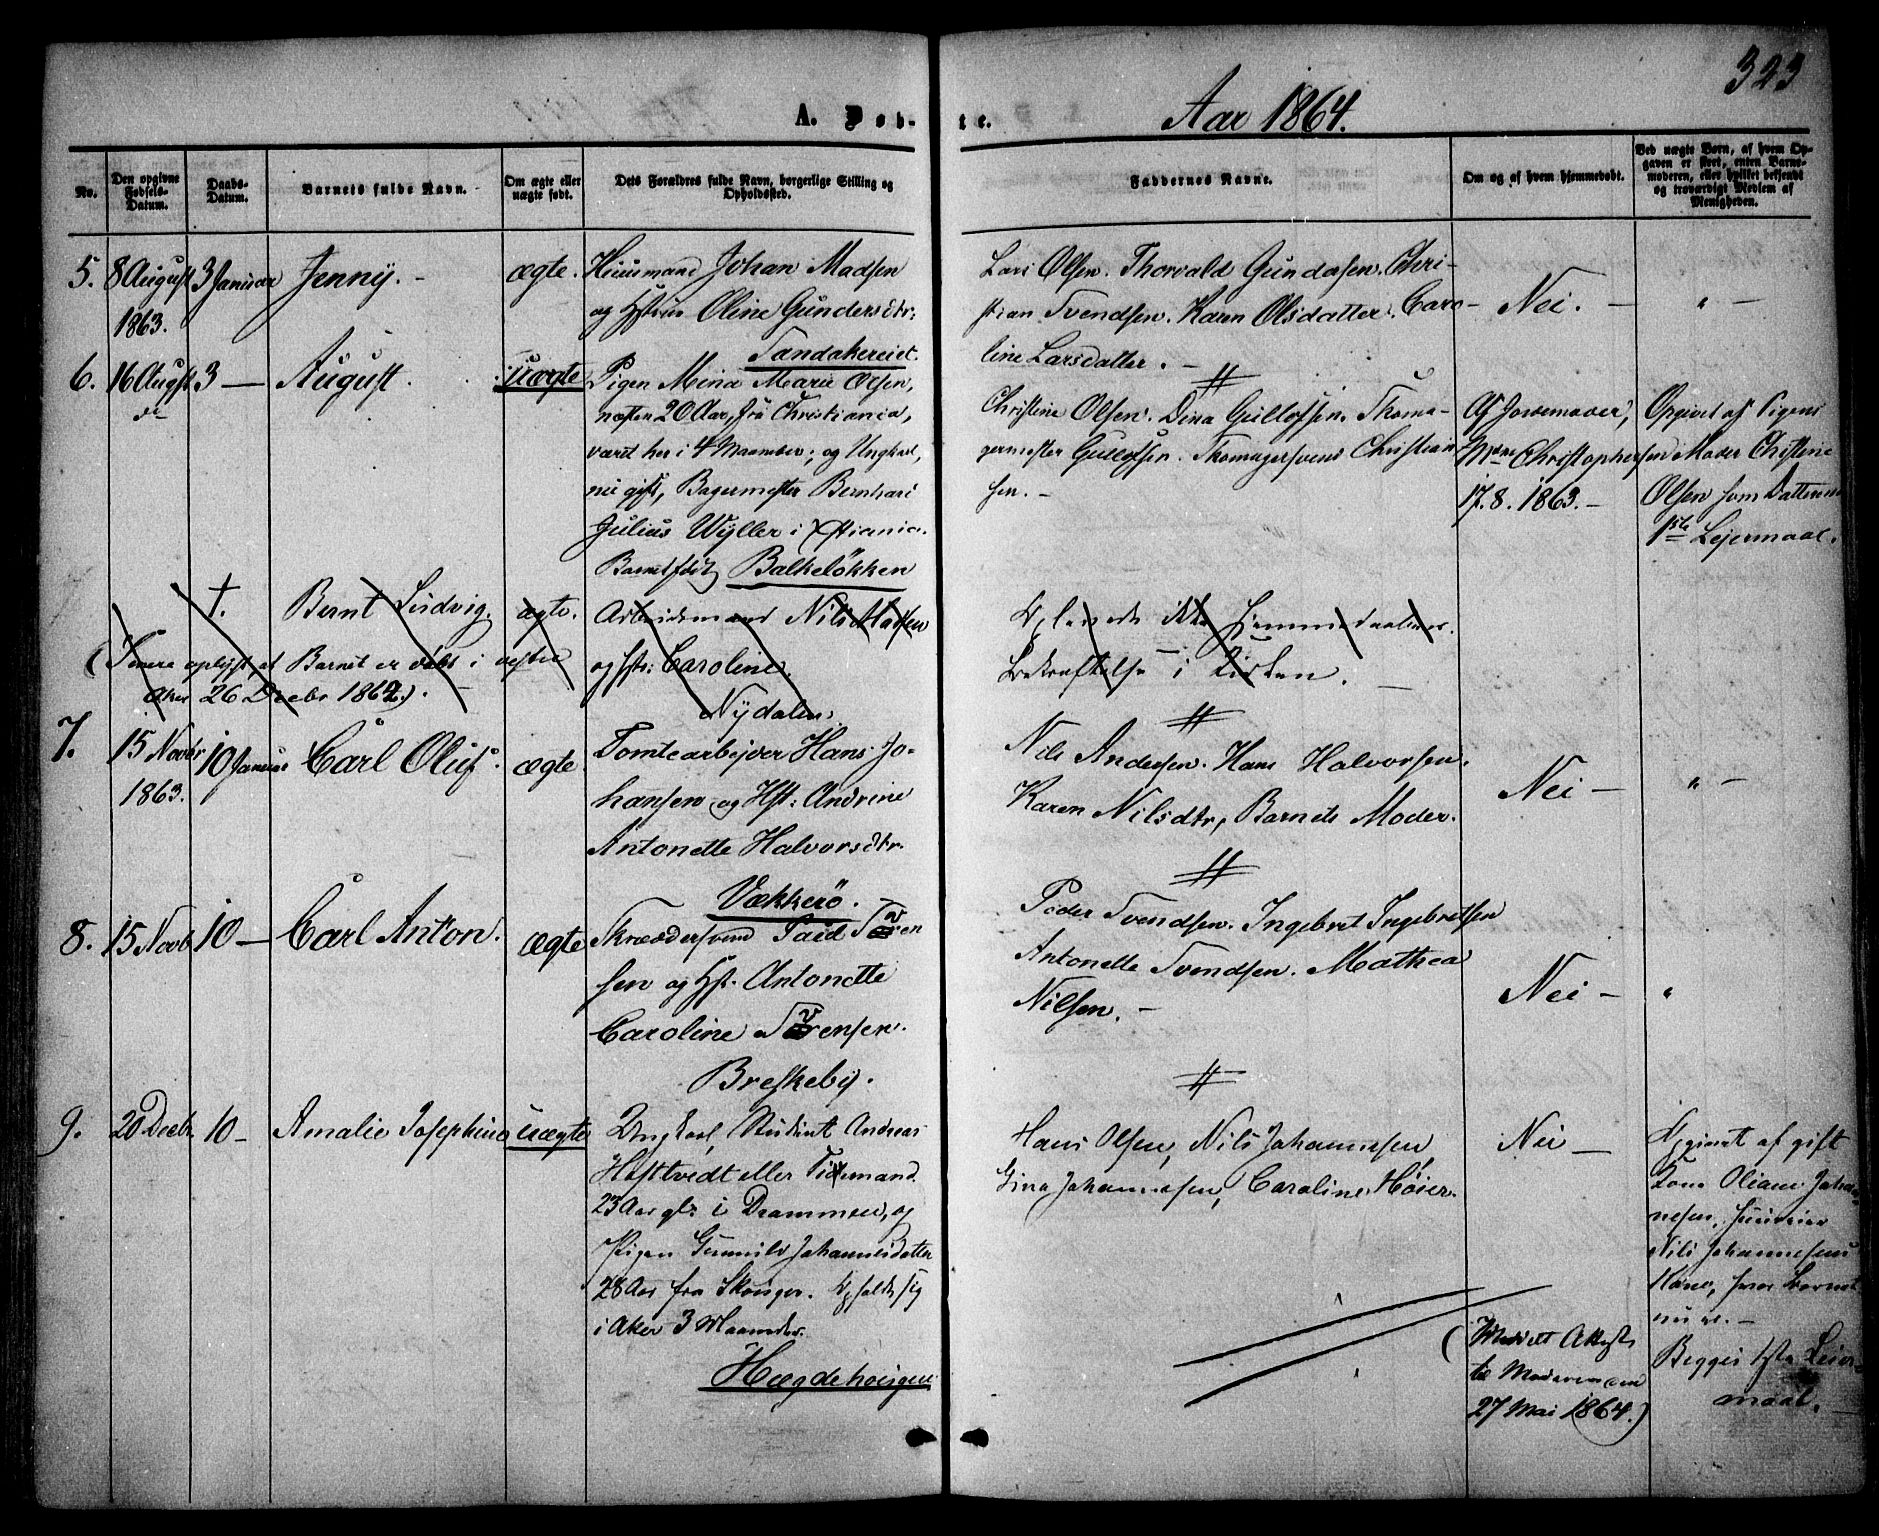 323
A. Døb-te. Aar 1864.
No.
Den opgivne Fødsels-Datum.
Daabs-Datum.
Barnets fulde Navn.
Om ægte eller uægte født.
Dets Forældres fulde Navn, borgerlige Stilling og Opholdssted.
Faddernes Navne.
Om og af hvem hjemmedøbt.
Ved uægte Børn, af hvem Op-
gaven er skeet, enten Barne-
moderen, eller hvilket bekjendt
og troværdigt Medlem af
Menigheden.
5. 8 August 3 Januar Jenny. - ægte. Huusmand Johan Madsen
1863. og Hstru Oline Gundersdtr:
Sandakereiet.
Lars Olsen. Thorvald Gundersen. Chri-
stian Svendsen. Karen Olsdatter. Caro-
line Larsdatter. -
Nei. -
" -
6. 16 Augst 3 - August. uægte Pigen Mina Marie Olsen,
næsten 20 Aar, fra Christiania,
været her i 4 Maaneder; og Ungkarl,
nu gift, Bagermester Bernhard
Julius Wyller i Xstiania.
Barnet født Balkeløkken
Christine Olsen. Dina Gulloffsen. Thoma-
germester Gulloffsen. Skomagersvend Christian
sen. -
Af Jordemoder,
Mdme Christophersen
17.8.1863. -
Opgivet af Pigens
Moder Christine
Olsen som Datterens
1ste Lejermaal.
†. Bernt Ludvig. ægte. Arbeidsmand Nils Madsen
og Hst: Caroline.
Nydalen.
(Senere oplyst, at Barnet er døbt i vestre
Aker 26 Decbr 1862.) -
Bekræftelse i Kirken. -
7. 15 Novbr 10 Januar Carl Oluf. ægte. Tomtearbejder Hans Jo-
1863. hansen og Hst: Andrine
Antonette Halvorsdtr.
Vækkerø.
Nils Andersen. Hans Halvorsen.
Karen Nilsdtr, Barnets Moder.
Nei -
" -
8. 15 Novb 10 - Carl Anton. ægte Skræddersvend Said Søren
sen og Hst. Antonette
Caroline Sørensen.
Breskeby.
Peder Svendsen. Ingebret Ingebretsen
Antonette Svendsen. Mathea
Nilsen. -
Nei -
"
9. 20 Decbr. 10 - Amalie Josephine uægte Ungkarl Student Andreas
Hofttvedt eller Tidemand
23 Aar gl: i Drammen, og
Pigen Gunnild Johannesdatter
28 Aar fra Skouger. Opholdt sig
i Aker 3 Maaneder.
Hægdehougen
Hans Olsen, Nils Johannesen,
Gina Johannesen, Caroline Høier.
Nei -
(Meddelt Attest
til Moderen den
27 Mai 1864.)
Opgivet af gift
Kone Oliane Johan-
nesen,
Nils Johannesens
Kone, hvor Barnet
nu er. -
Begges 1ste Leier-
maal. -